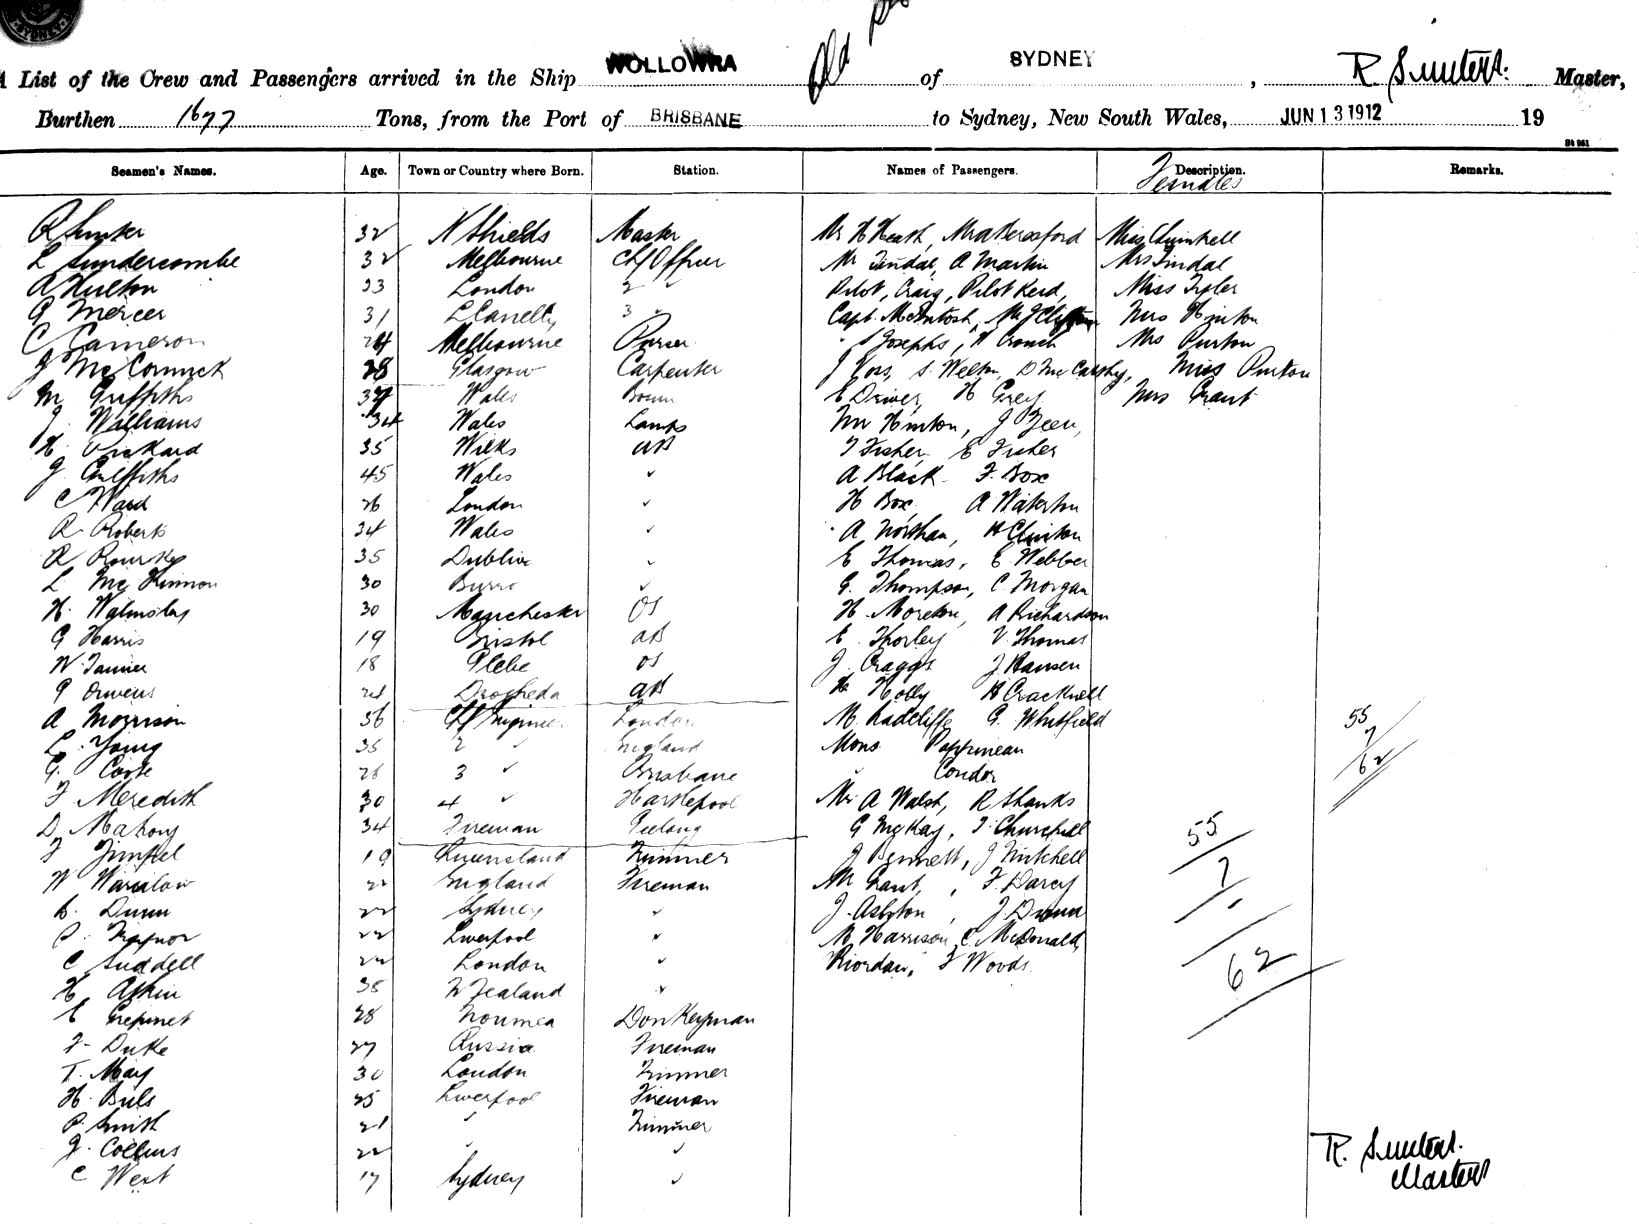 SYDNEY
A List of the Crew and Passengers arrived in the Ship WOLLOWRA of SYDNEY, R Sunters. Master,
Burthen 1677 Tons, from the Port of BRISBANE to Sydney, New South Wales, JUN 13 1912 19
Seamen's Names. Age. Town or Country where Born. Station. Names of Passengers. Description. Remarks.
Females
32 N Shields Master Mr H Heath, Miss
L Sundercombe 32 Melbourne Ch Officer Mr Tindal, A Martin Mrs Tindal
A Hulton 33 London 2 " Pilot, Craig, Pilot Miss
G Mercer 31 Llanelly 3 " Capt. McIntosh, Mrs Hinton
C Cameron 24 Melbourne Purser Josephs, H Crouch Mrs Purton
J McCormick 28 Glasgow Carpenter J Voss, S. Welton, D McCarthy, Miss Purton
M Griffiths 37 Wales E Driver, H Grey Mrs Grant
J. Williams 34 Wales Lamps Mr Hinton, J
H. Pickard 35 Wales AB T Fisher, E Fisher
J. Griffiths 45 Wales " A Black F. Box
C Ward 26 London " H Box, A Waterton
R Roberts 34 Wales " A Northan, H Clinton
R Rourke 35 Dublin " E Thomas, E. Webber
L McKinnon 30 " G. Thompson, C. Morgan
H. Walmsley 30 Manchester OS H. Moreton, A Richardson
G Harris 19 Bristol AB E. Thorley V Thomas
W. Tanner 18 Glebe OS J. Craggs J Hansen
G Drogheda AB H Holly H Cracknell
A Morrison 36 Ch Engineer London M. Radcliffe G. Whitfield 55
L. Young 35 2 " England Mons Pappineau 7
G. Coote 26 3 " Brisbane " Condor 62
F Meredith 30 4 " Hartlepool Mr A Walsh, R Shanks
D Mahony 34 Fireman Geelong G McKay, T Churchill 55
19 Queensland Trimmer J Bennett, J Mitchell 7
W Winslow 22 England Fireman Mr Grant, F. Darcy
Dunn 22 Sydney " J. Ashton, J Dunn
P. 22 Liverpool " M Harrison, C. McDonald, 62
C Suddell 22 London " Riordan, F Woods
H. Askin 38 N Zealand "
E 28 Noumea Donkeyman
F. Duke 27 Russia Fireman
T. May 30 London Trimmer
H. 25 Liverpool Fireman
P. Smith 21 " Trimmer
J. Collins 22 " "
C West 17 Sydney "
R. Sunters.
Master